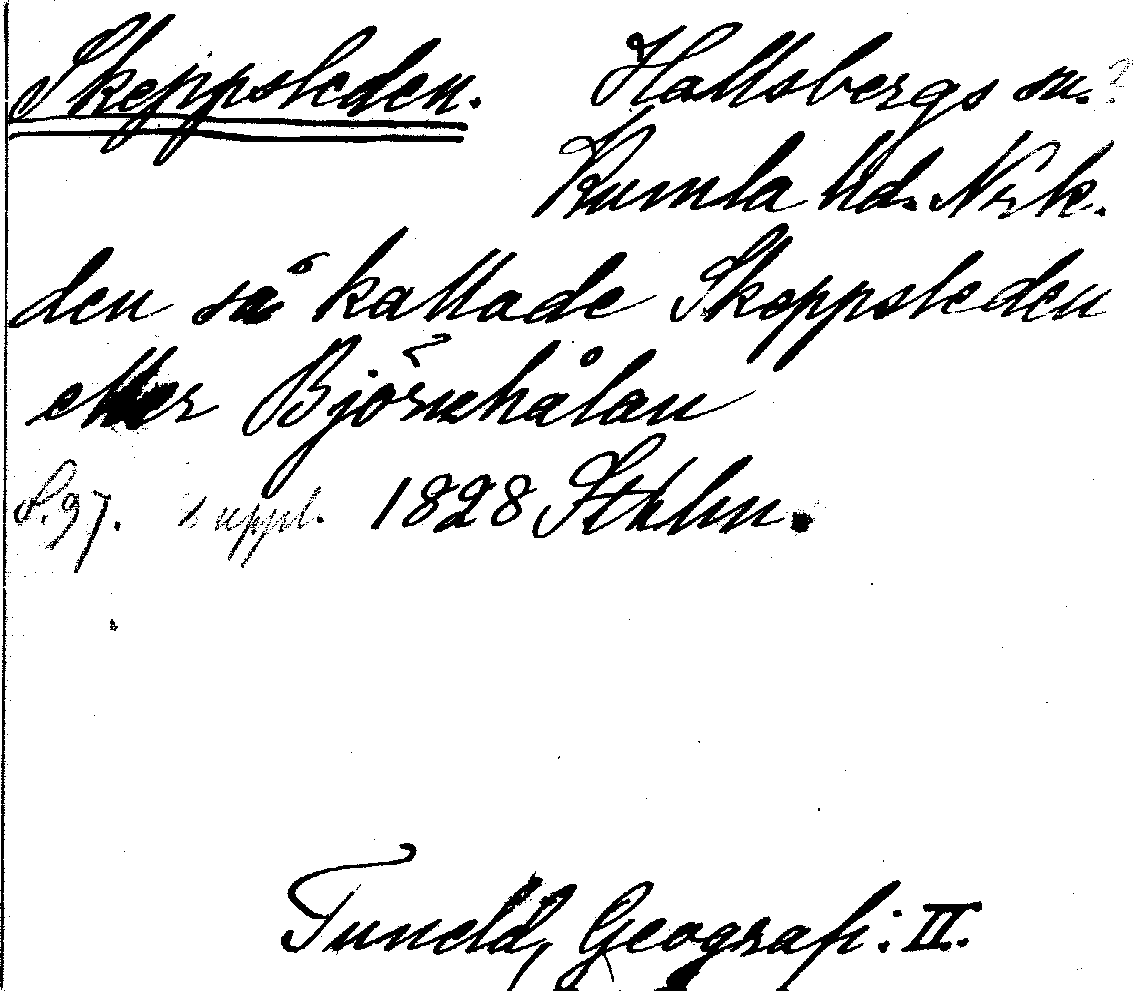 Skeppsleden. Hallsbergs sn.?
Kumla hd. Nrk.
den så kallade Skeppsleden
eller Björnhålan
S. 97. uppl. 1828 Sthlm.
Tuneld, Geografi: II.